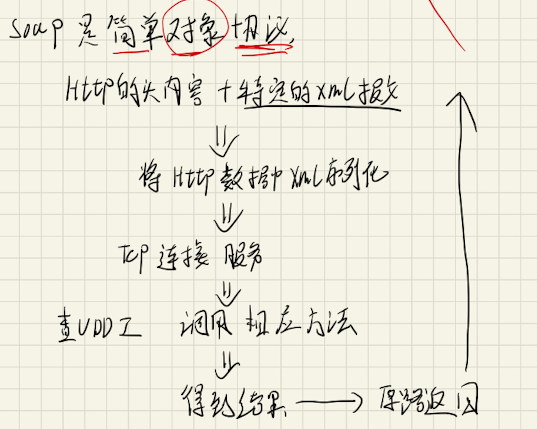 Soap 是简单对象协议,
Http的头内容 + 特定的xml报文
将 Http 数据中 Xml 序列化
Tcp 连接 服务
查UDDI 调用 相应方法
得到结果 → 原路返回